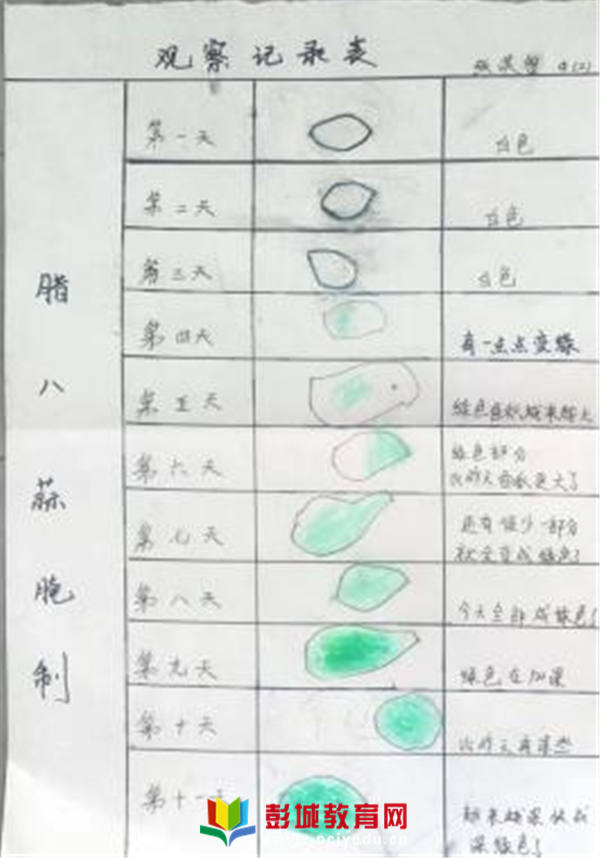 观察记录表
4(2)
腊八蒜腌制
第一天
白色
第二天
白色
第三天
白色
第四天
有一点点变绿
第五天
绿色面积越来越大
第六天
绿色部分
比昨天面积更大了
第七天
还有很少一部分
就全变成绿色了
第八天
今天全部成绿色了
第九天
绿色在加深
第十天
比昨天再深些
第十一天
越来越深
深绿色了
彭城教育网